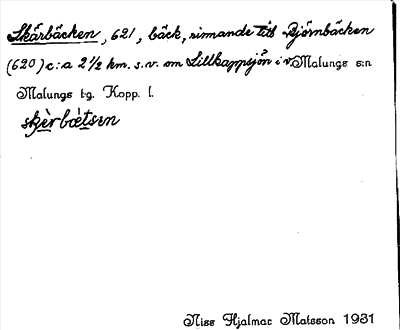 Skärbäcken, 621, bäck, rinnande till Björnbäcken
(620) c:a 2 1/2 km. s.v. om Lillkappsjön i v. Malungs s:n
Malungs tg. Kopp. l.
skèr bètsen
Niss Hjalmar Matsson 1931